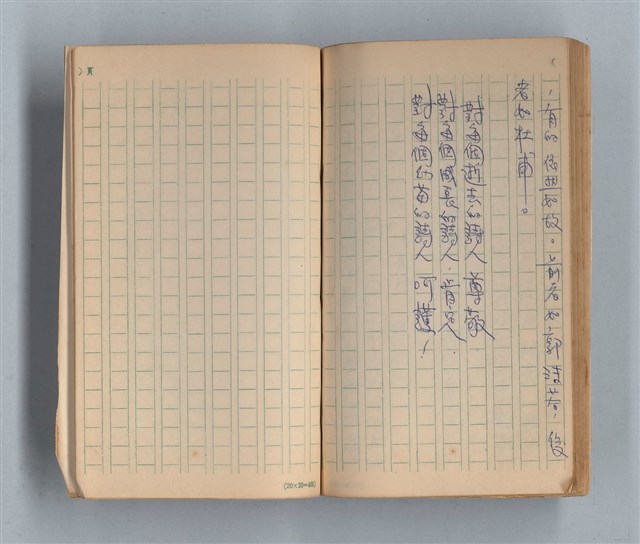 ，有的依然如故。前者如郭沫若，後
者如杜甫─。
對每個過去的詩人尊敬
對每個成長的詩人,肯定.
對每個幼苗的詩人呵護！
頁
(20×20=400)